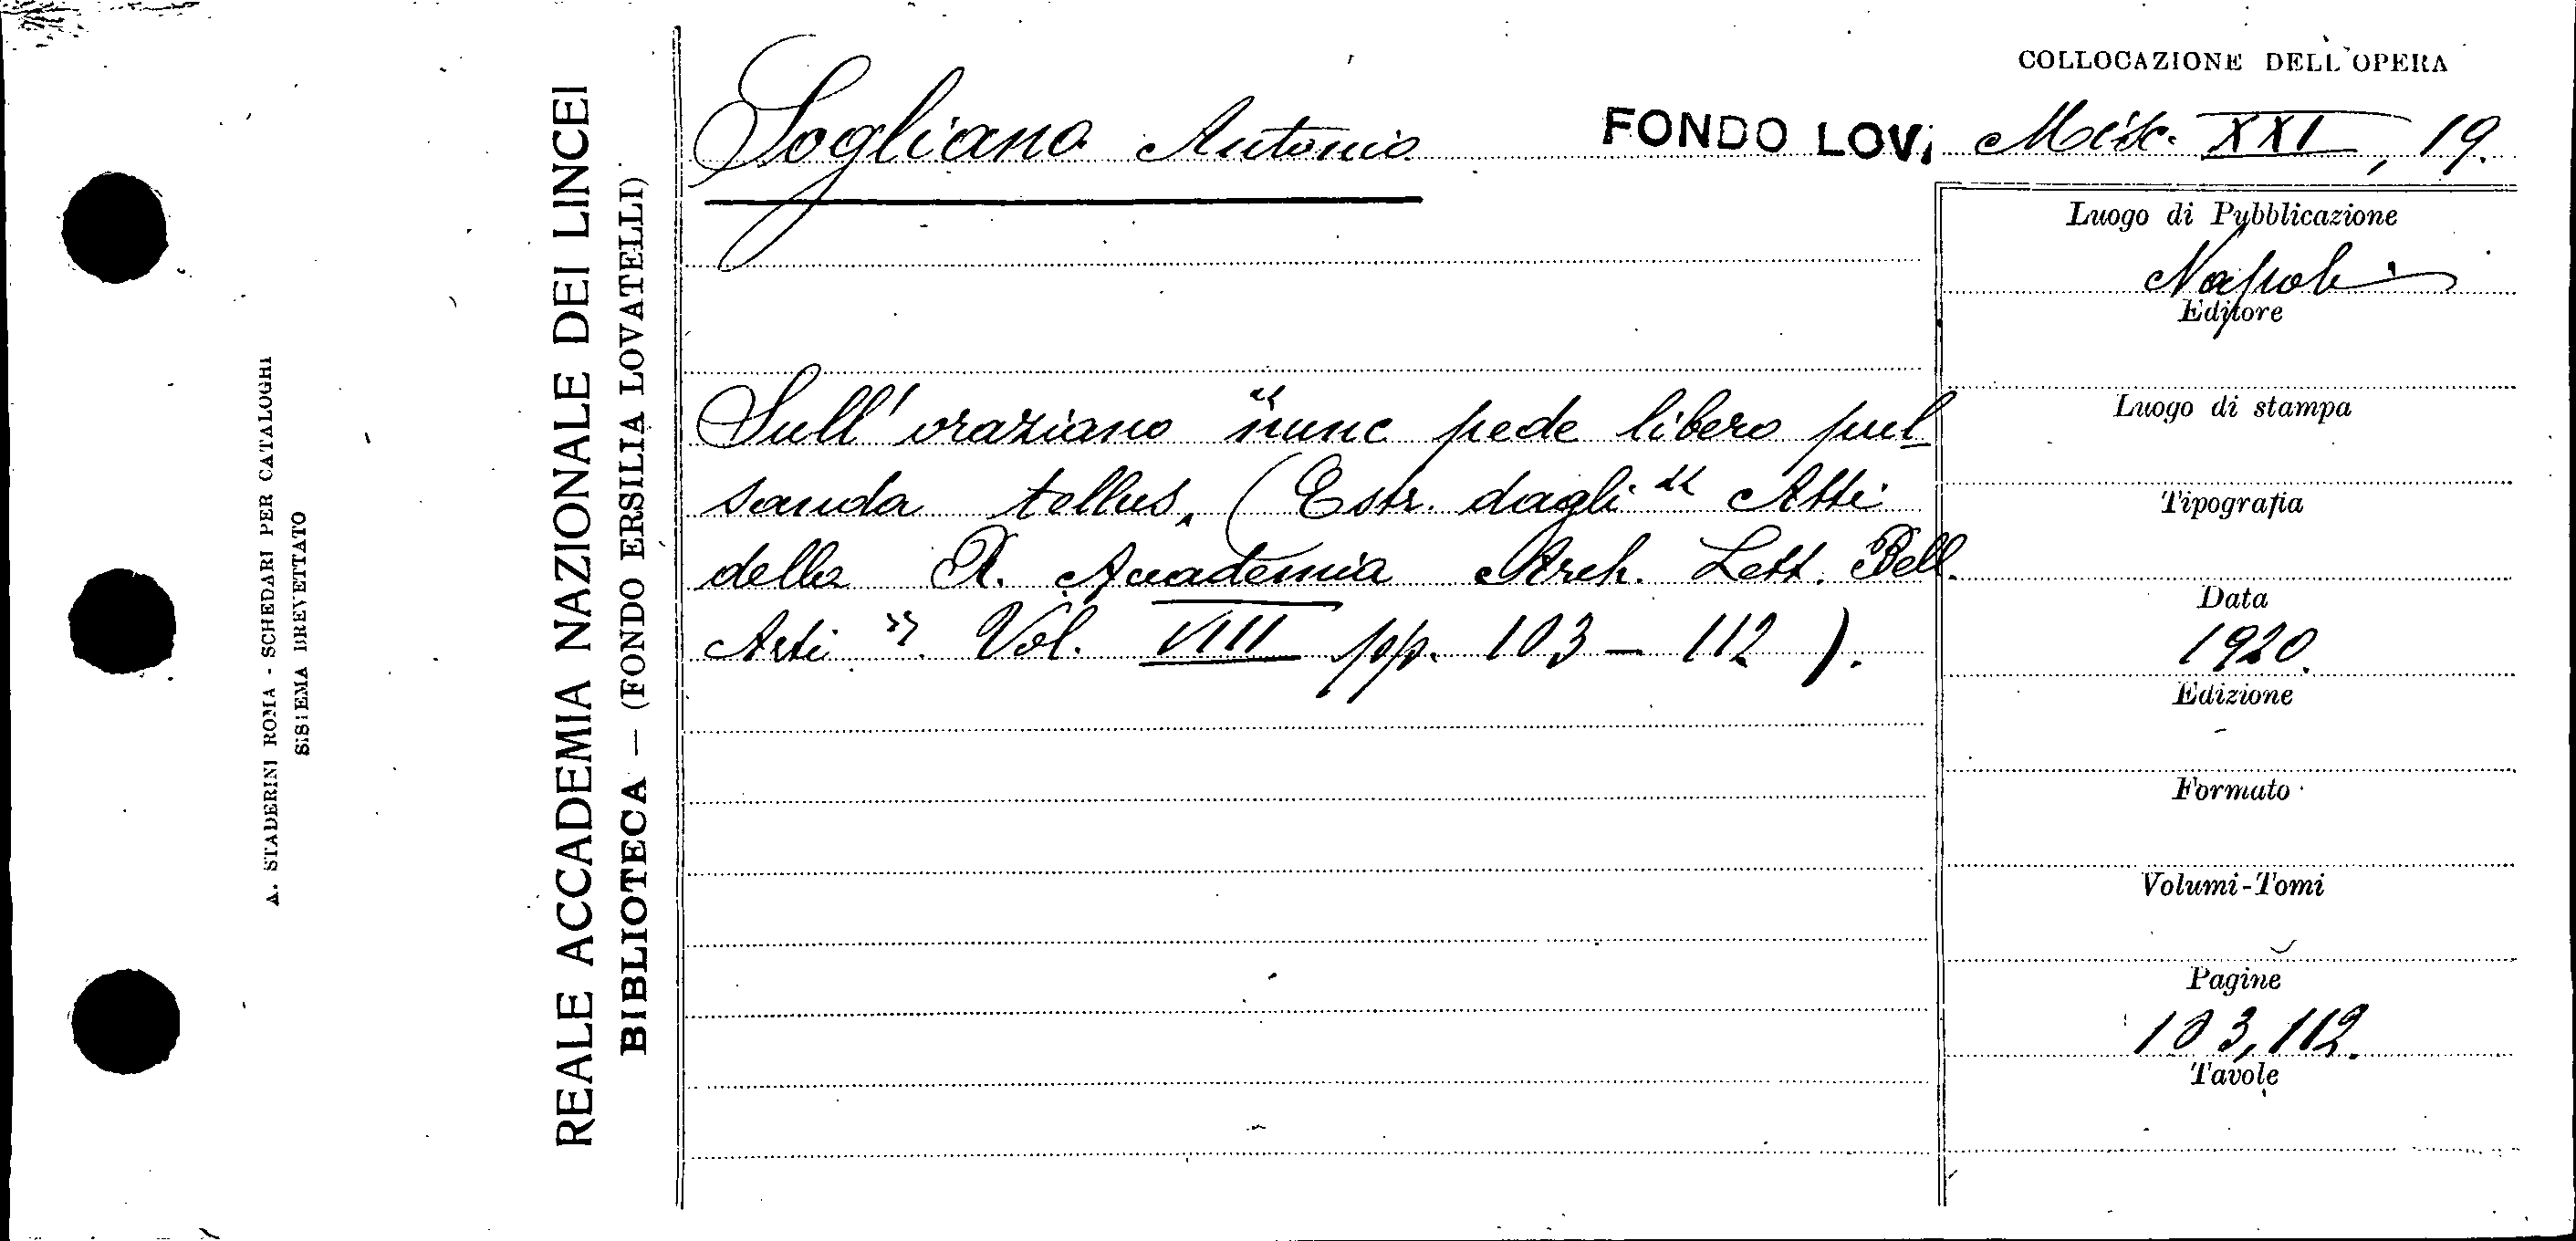 COLLOCAZIONE DELL'OPERA
Sogliano Antonio
FONDO LOV. Misc. XXI, 19.
Luogo di Pubblicazione
Napoli
Editore
Sull' oraziano "nunc pede libero pul-
Luogo di stampa
sanda tellus„ (Estr. dagli " Atti
Tipografia
della R. Accademia Arch. Lett. Bell.
Data
Arti ". Vol. VIII pp. 103 - 112 ).
1920.
Edizione
-
Formato
Volumi-Tomi
Pagine
103,112.
Tavole
REALE ACCADEMIA NAZIONALE DEI LINCEI
BIBLIOTECA — (FONDO ERSILIA LOVATELLI)
A. STADERINI ROMA - SCHEDARI PER CATALOGHI
SISTEMA BREVETTATO